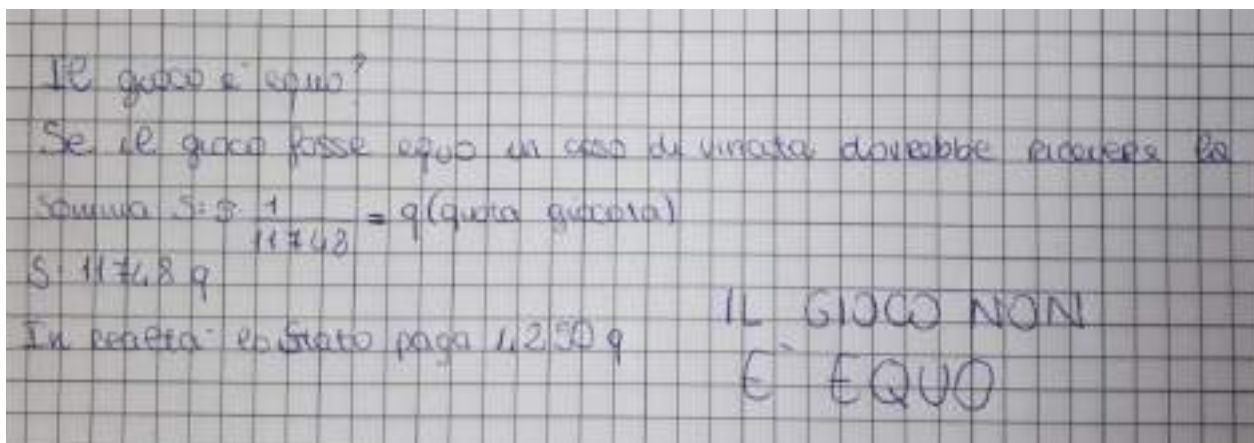 Il gioco è equo?
Se il gioco fosse equo in caso di vincata dovrebbe ricevere la
somma S: S· 1/11748 = q (quota giocata)
S: 11748 q
In realtà lo Stato paga 4250 q
IL GIOCO NON
È EQUO